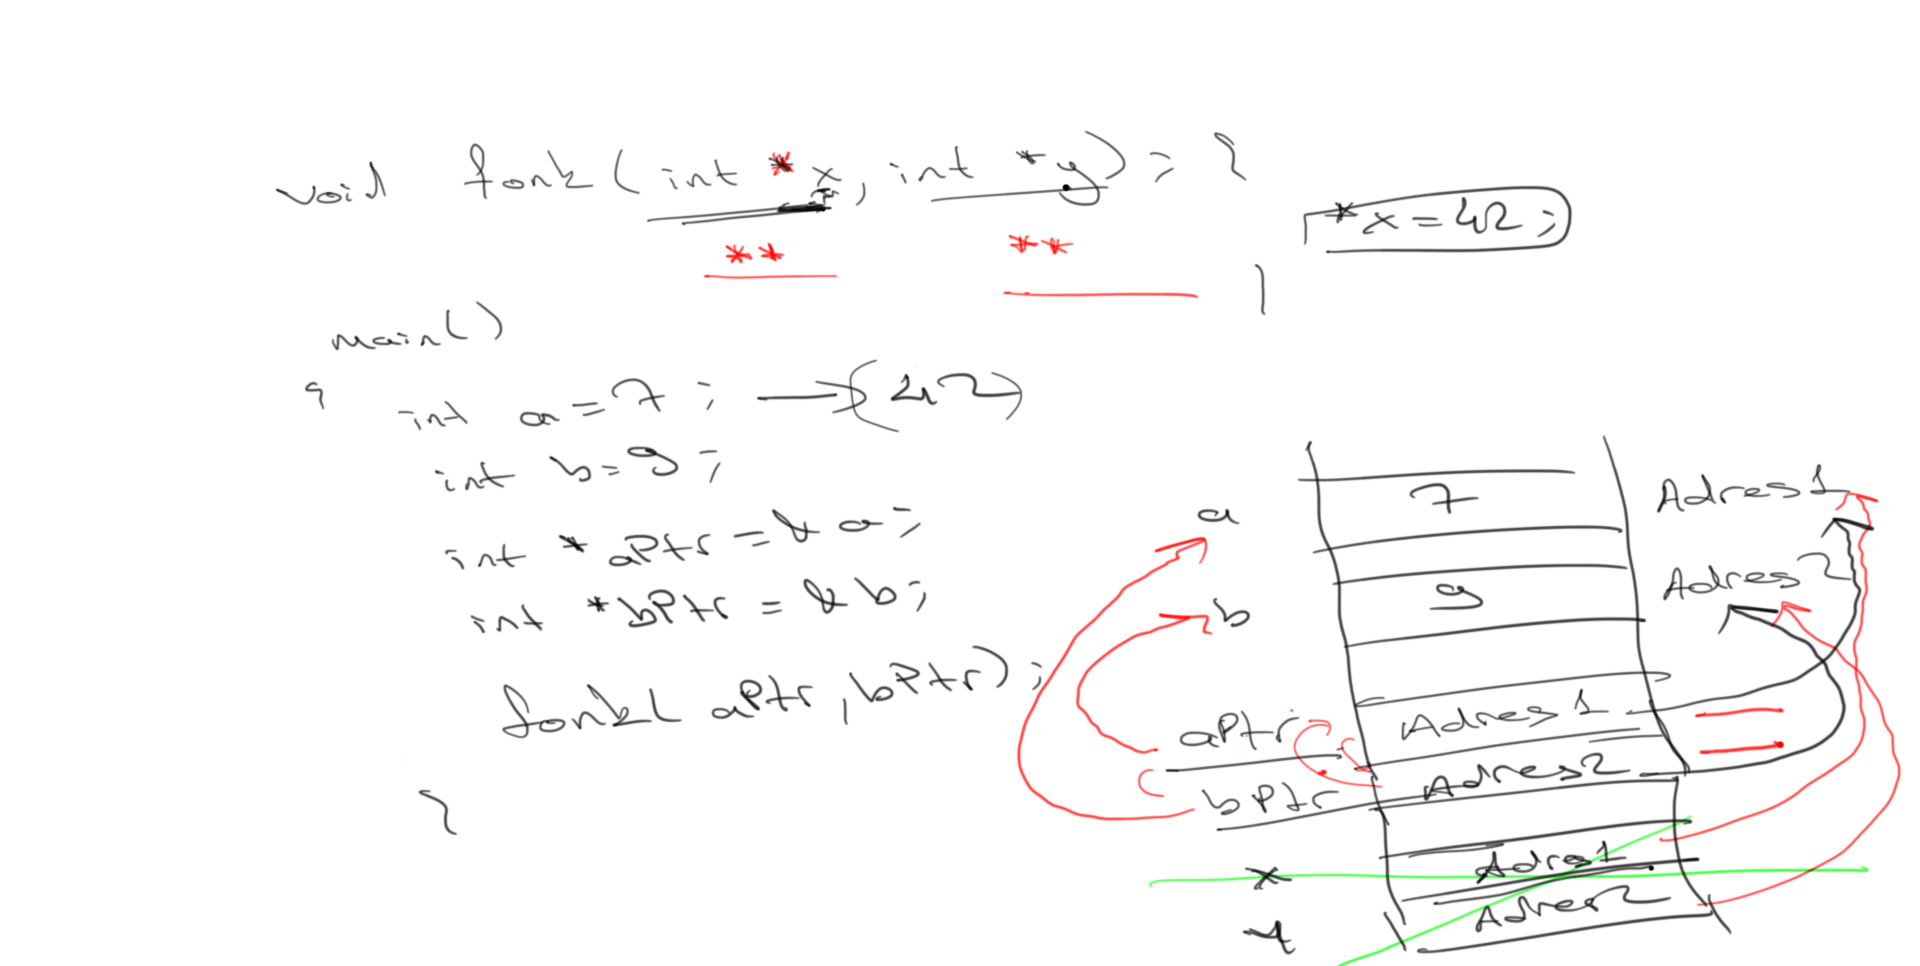 void fonk(int *x, int *y); {
** **
*x = 42;
}
main()
{
int a = 7; → (42)
int b = 9;
int *aPtr = &a;
int *bPtr = &b;
fonk( aPtr, bPtr);
}
a 7 Adres1
b 9 Adres2
aPtr Adres1
bPtr Adres2
x Adres1
y Adres2